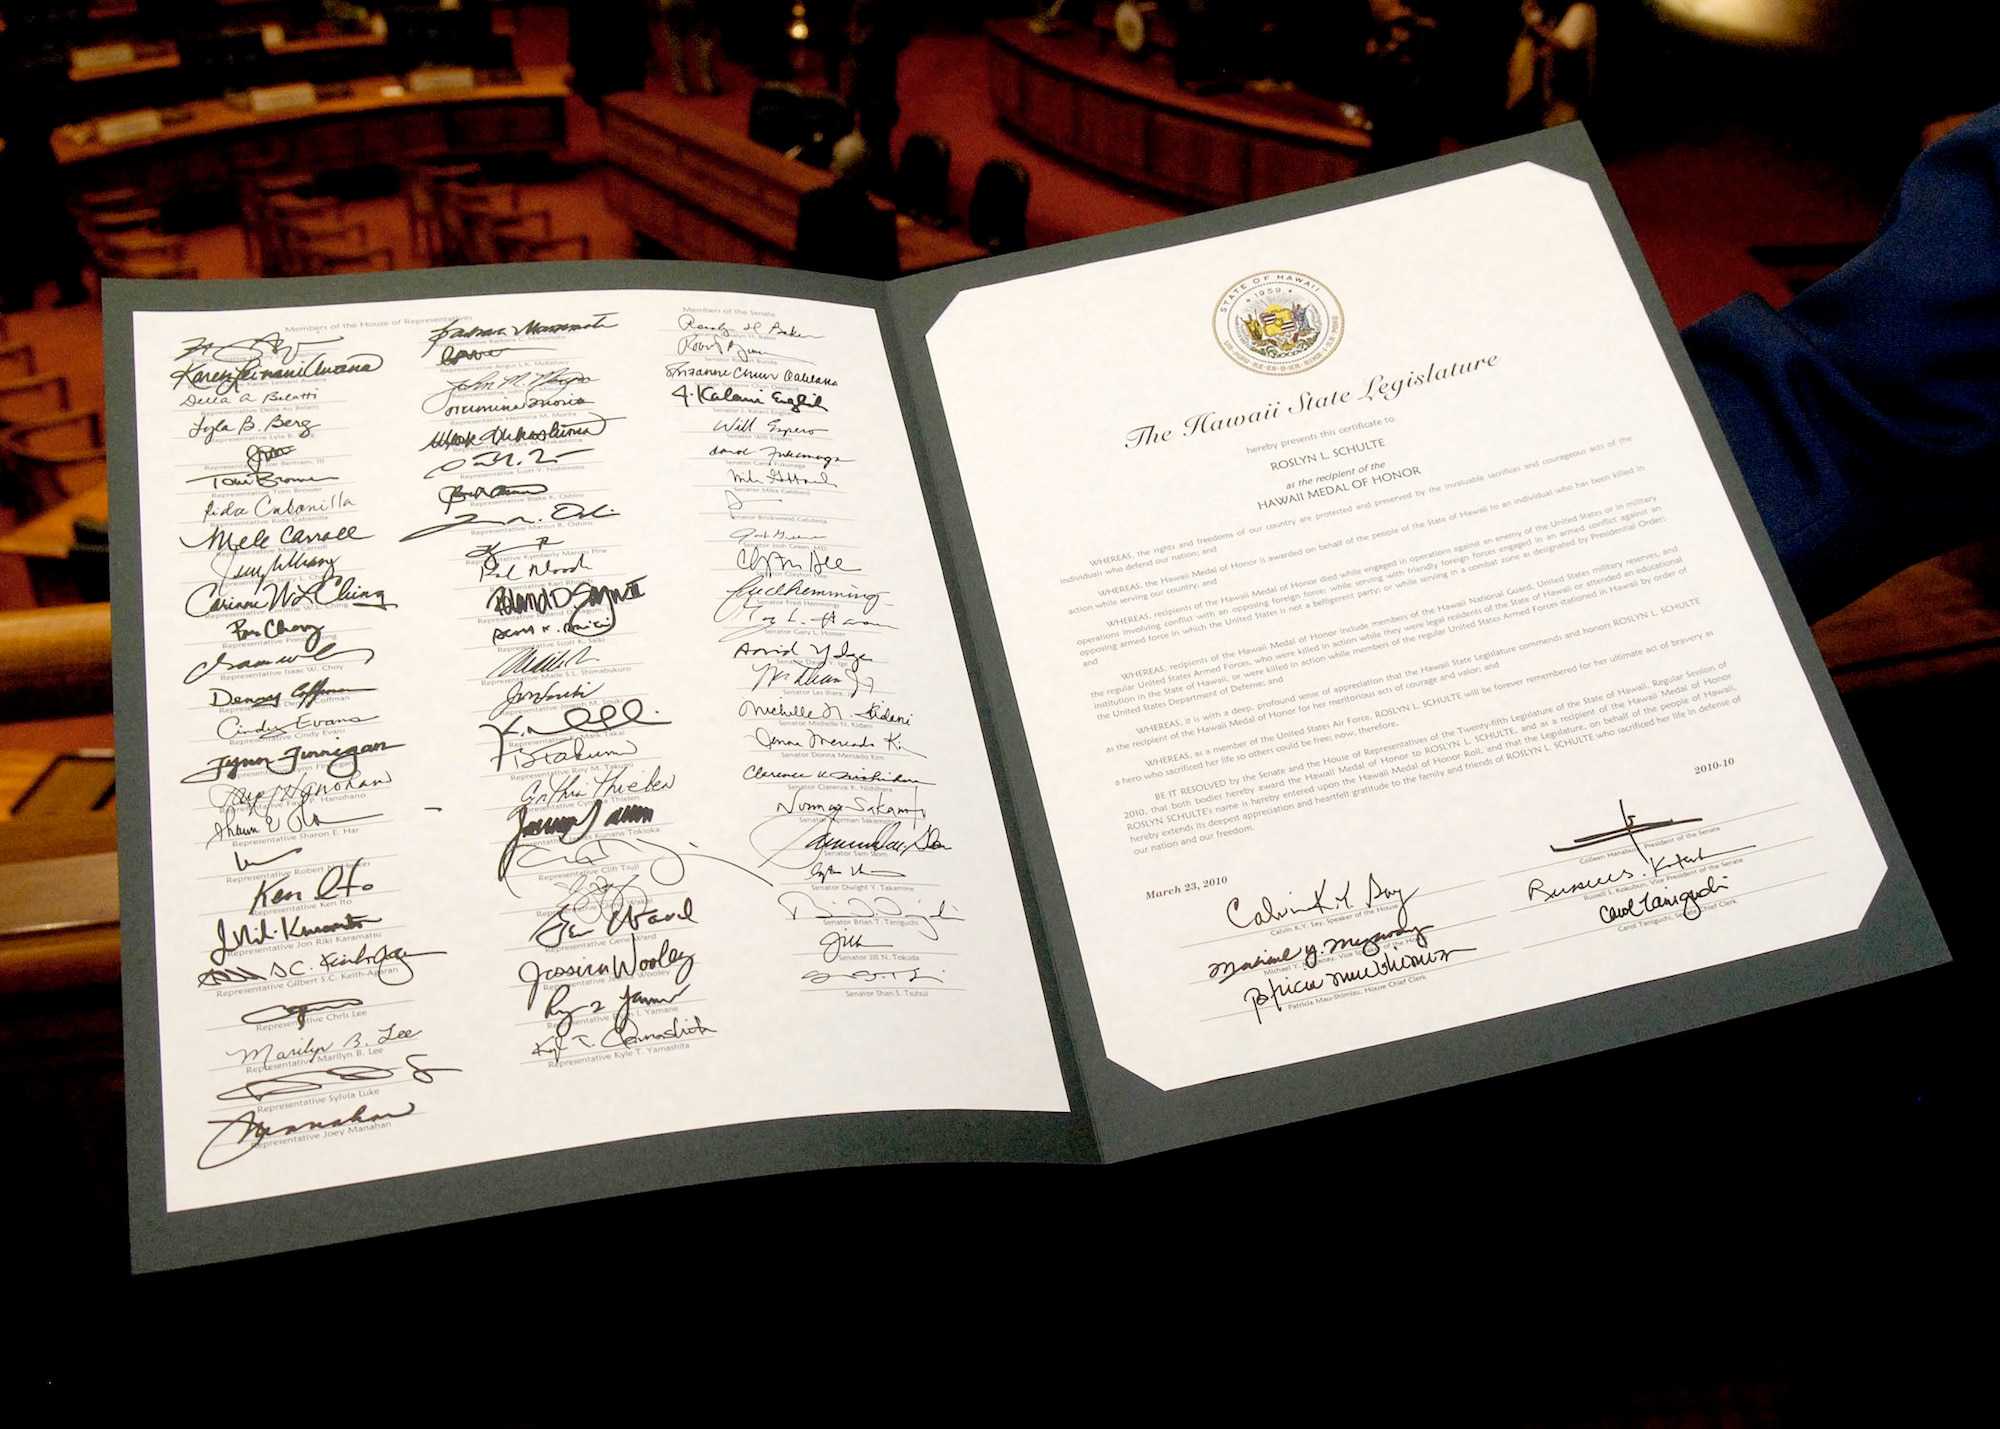 Members of the House of Representatives
Karen Leinani Awana
Della A Belatti
Representative Della Au Belatti
Lyla B. Berg
Representative Lyla B.
Representative Joe Bertram, III
Tom Brower
Representative Tom Brower
Rida Cabanilla
Representative Rida Cabanilla
Mele Carroll
Representative Mele Carroll
Representative Jerry L.
Corinne W. L. Ching
Representative Corinne W.L. Ching
Representative Pono
Representative Isaac W. Choy
Denny Coffman
Cindy Evans
Representative Cindy Evans
Lynn Finnegan
Faye P. Hanohano
Representative Sharon E. Har
Representative Robert N. Herkes
Ken Ito
Representative Ken Ito
Representative Jon Riki Karamatsu
Representative Gilbert S.C. Keith-Agaran
Representative Chris Lee
Marilyn B. Lee
Representative Marilyn B. Lee
Representative Sylvia Luke
Representative Joey Manahan
Representative Barbara C. Marumoto
Representative Angus L.K. McKelvey
Representative Hermina M. Morita
Representative Mark M. Nakashima
Representative Scott Y. Nishimoto
Representative Blake K. Oshiro
Representative Marcus R. Oshiro
Representative Kymberly Marcos Pine
Karl Rhoads
Representative Scott K. Saiki
Representative Maile S.L. Shimabukuro
Representative Joseph M. Souki
Representative K. Mark Takai
Representative Roy M. Takumi
Cynthia Thielen
Representative Cynthia Thielen
James Kunane Tokioka
Representative Clift Tsuji
Gene Ward
Representative Gene Ward
Jessica Wooley
Representative Kyle T. Yamashita
Members of the Senate
Roz H Baker
Suzanne Chun Oakland
Senator Suzanne Chun Oakland
J. Kalani English
Senator J. Kalani English
Will Espero
Senator Will Espero
Senator Carol Fukunaga
Senator Mike Gabbard
Senator Brickwood Galuteria
Senator Josh Green, MD
Senator Clayton Hee
Fred Hemmings
Senator Fred Hemmings
Senator Gary L. Hooser
Senator David Y. Ige
Senator Les Ihara,
Michelle N. Kidani
Senator Michelle N. Kidani
Donna Mercado Kim
Senator Donna Mercado Kim
Senator Clarence K. Nishihara
Norman Sakamoto
Senator Norman Sakamoto
Senator Sam Slom
Senator Dwight Y. Takamine
Senator Brian T. Taniguchi
Jill
Senator Jill N. Tokuda
Senator Shan S. Tsutsui
STATE OF HAWAII
1959
The Hawaii State Legislature
hereby presents this certificate to
ROSLYN L. SCHULTE
as the recipient of the
HAWAII MEDAL OF HONOR
WHEREAS, the rights and freedoms of our country are protected and preserved by the invaluable sacrifices and courageous acts of the
individuals who defend our nation; and
WHEREAS, the Hawaii Medal of Honor is awarded on behalf of the people of the State of Hawaii to an individual who has been killed in
action while serving our country; and
WHEREAS, recipients of the Hawaii Medal of Honor died while engaged in operations against an enemy of the United States or in military
operations involving conflict with an opposing foreign force; while serving with friendly foreign forces engaged in an armed conflict against an
opposing armed force in which the United States is not a belligerent party; or while serving in a combat zone as designated by Presidential Order;
and
WHEREAS, recipients of the Hawaii Medal of Honor include members of the Hawaii National Guard, United States military reserves, and
the regular United States Armed Forces, who were killed in action while they were legal residents of the State of Hawaii or attended an educational
institution in the State of Hawaii, or were killed in action while members of the regular United States Armed Forces stationed in Hawaii by order of
the United States Department of Defense; and
WHEREAS, it is with a deep, profound sense of appreciation that the Hawaii State Legislature commends and honors ROSLYN L. SCHULTE
as the recipient of the Hawaii Medal of Honor for her meritorious acts of courage and valor; and
WHEREAS, as a member of the United States Air Force, ROSLYN L. SCHULTE will be forever remembered for her ultimate act of bravery as
a hero who sacrificed her life so others could be free; now, therefore,
BE IT RESOLVED by the Senate and the House of Representatives of the Twenty-fifth Legislature of the State of Hawaii, Regular Session of
2010, that both bodies hereby award the Hawaii Medal of Honor to ROSLYN L. SCHULTE, and as a recipient of the Hawaii Medal of Honor
ROSLYN SCHULTE's name is hereby entered upon the Hawaii Medal of Honor Roll, and that the Legislature, on behalf of the people of Hawaii,
hereby extends its deepest appreciation and heartfelt gratitude to the family and friends of ROSLYN L. SCHULTE who sacrificed her life in defense of
our nation and our freedom.
2010-10
March 23, 2010
Colleen Hanabusa, President of the Senate
Calvin K.Y. Say
Calvin K.Y. Say, Speaker of the House
Russell S. Kokubun, Vice President of the Senate
Carol Taniguchi
Carol Taniguchi, Senate Chief Clerk
Michael Y. Magaoay, Vice Speaker of the House
Patricia Mau-Shimizu
Patricia Mau-Shimizu, House Chief Clerk